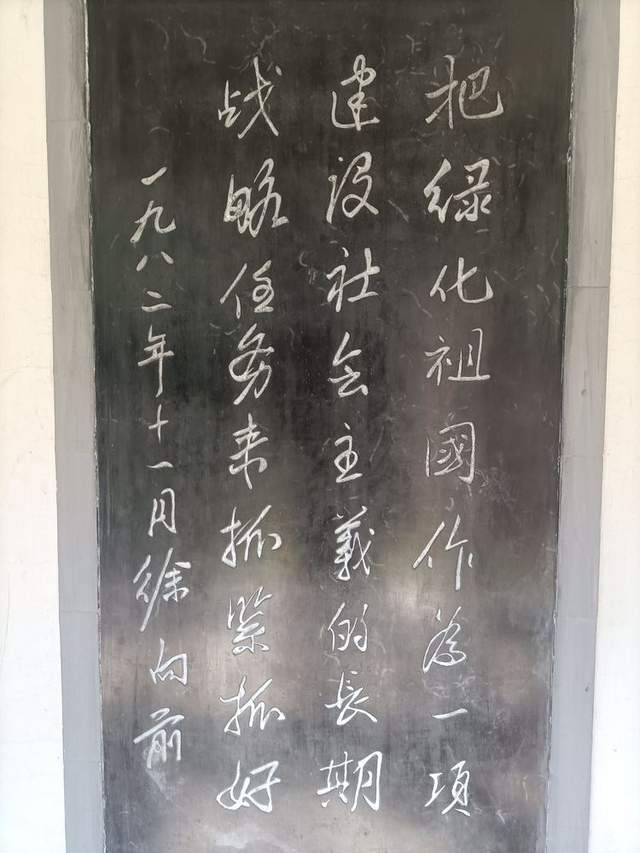 把绿化祖國作為一項
建设社会主義的長期
战略任务来抓紧抓好
一九八二年十一月徐向前